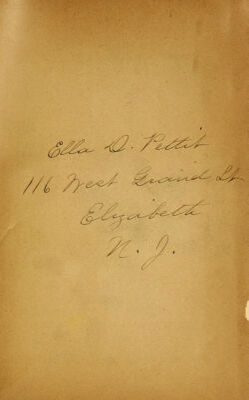 Ella D. Pettit
116 West Grand St.
Elizabeth
N. J.